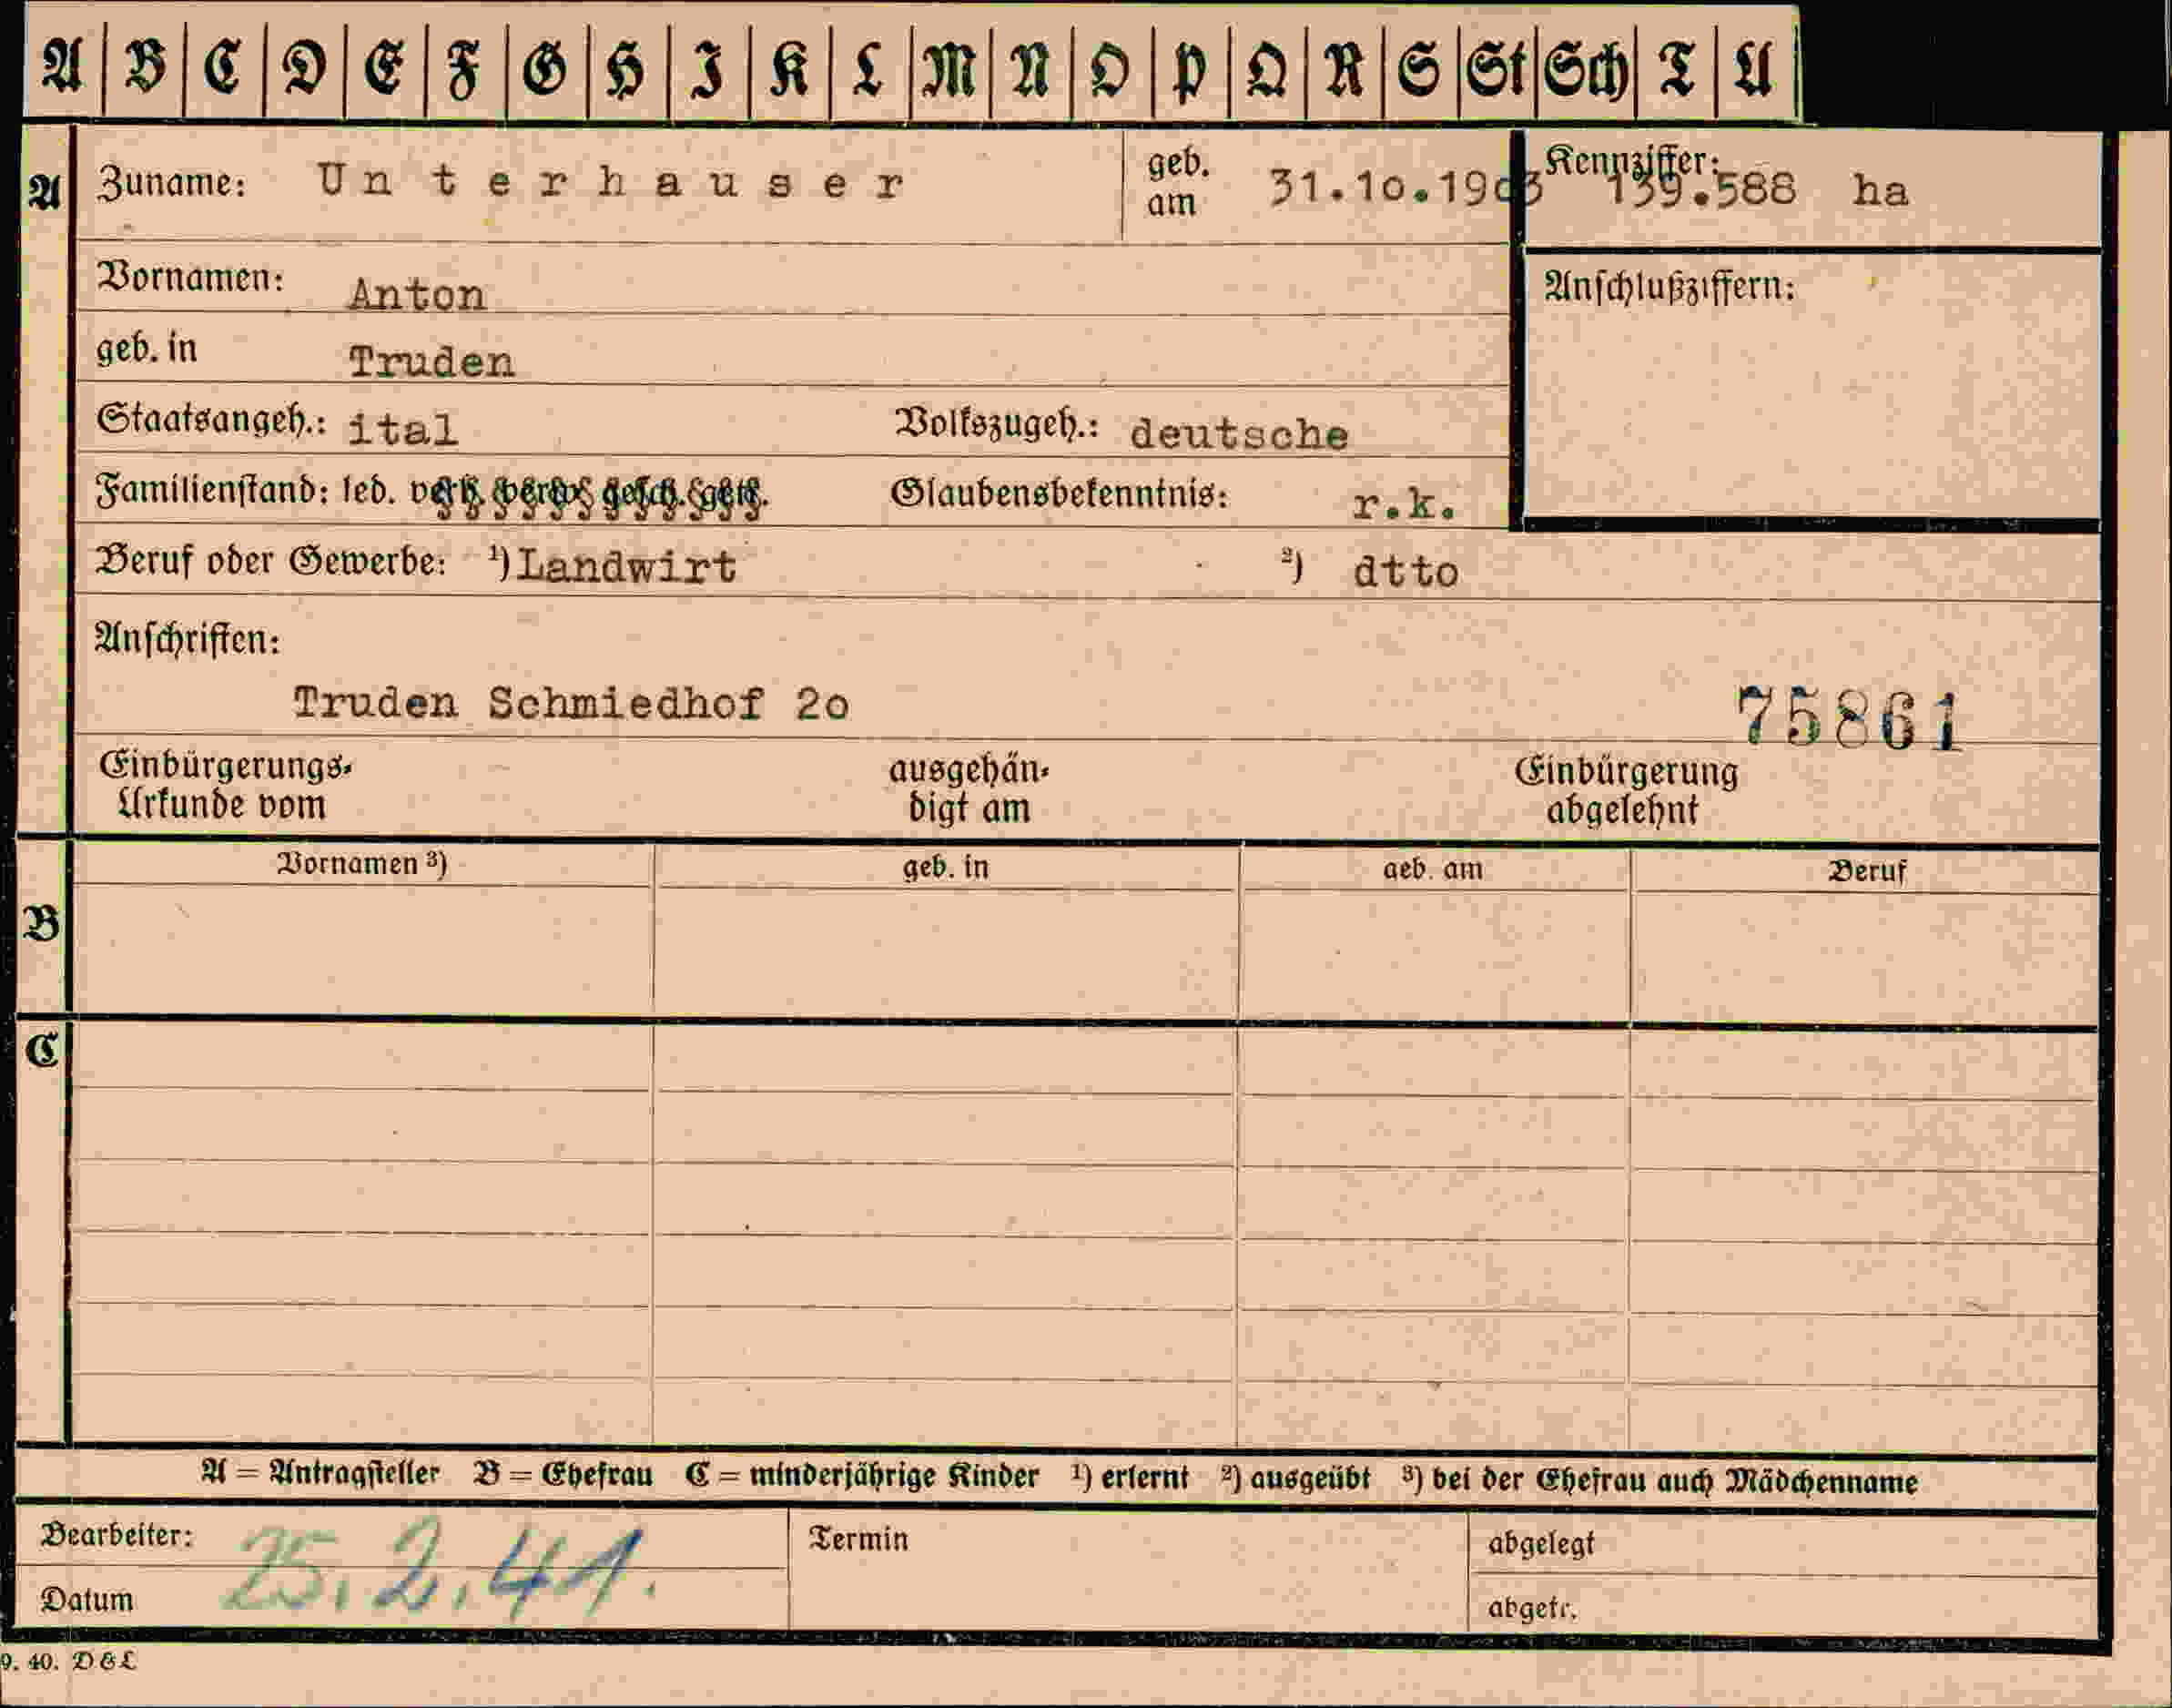 A B C D E F G H I K L M N O P Q R S St Sch T U
A Zuname: Unterhauser geb. am 31.10.1903 Kennziffer: 139.588 ha
Vornamen: Anton Anschlußziffern:
geb. in Truden
Staatsangeh.: ital Volkszugeh.: deutsche
Familienstand: led. verh. verw. gesch. getr. Glaubensbekenntnis: r.k.
Beruf oder Gewerbe: ¹) Landwirt ²) dtto
Anschriften:
Truden Schmiedhof 2o 75861
Einbürgerungs- ausgehän- Einbürgerung
Urkunde vom digt am abgelehnt
Vornamen ³) geb. in geb. am Beruf
B
C
A = Antragsteller B = Ehefrau C = minderjährige Kinder ¹) erlernt ²) ausgeübt ³) bei der Ehefrau auch Mädchenname
Bearbeiter: Termin abgelegt
25.2.41.
Datum abgetr.
9. 40. D&L